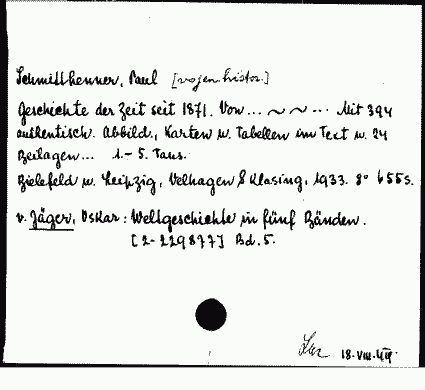 Schmitthenner, Paul [vojen. histor.]
Geschichte der Zeit seit 1871. Von ... ~ ~ ... Mit 394
authentisch. Abbild., Karten u. Tabellen im Text u. 24
Beilagen ... 1.-5. Taus.
Bielefeld u. Leipzig, Velhagen & Klasing, 1933. 8° 655s.
v. Jäger, Oskar: Weltgeschichte in fünf Bänden.
[2-229877] Bd. 5.
18.VIII.